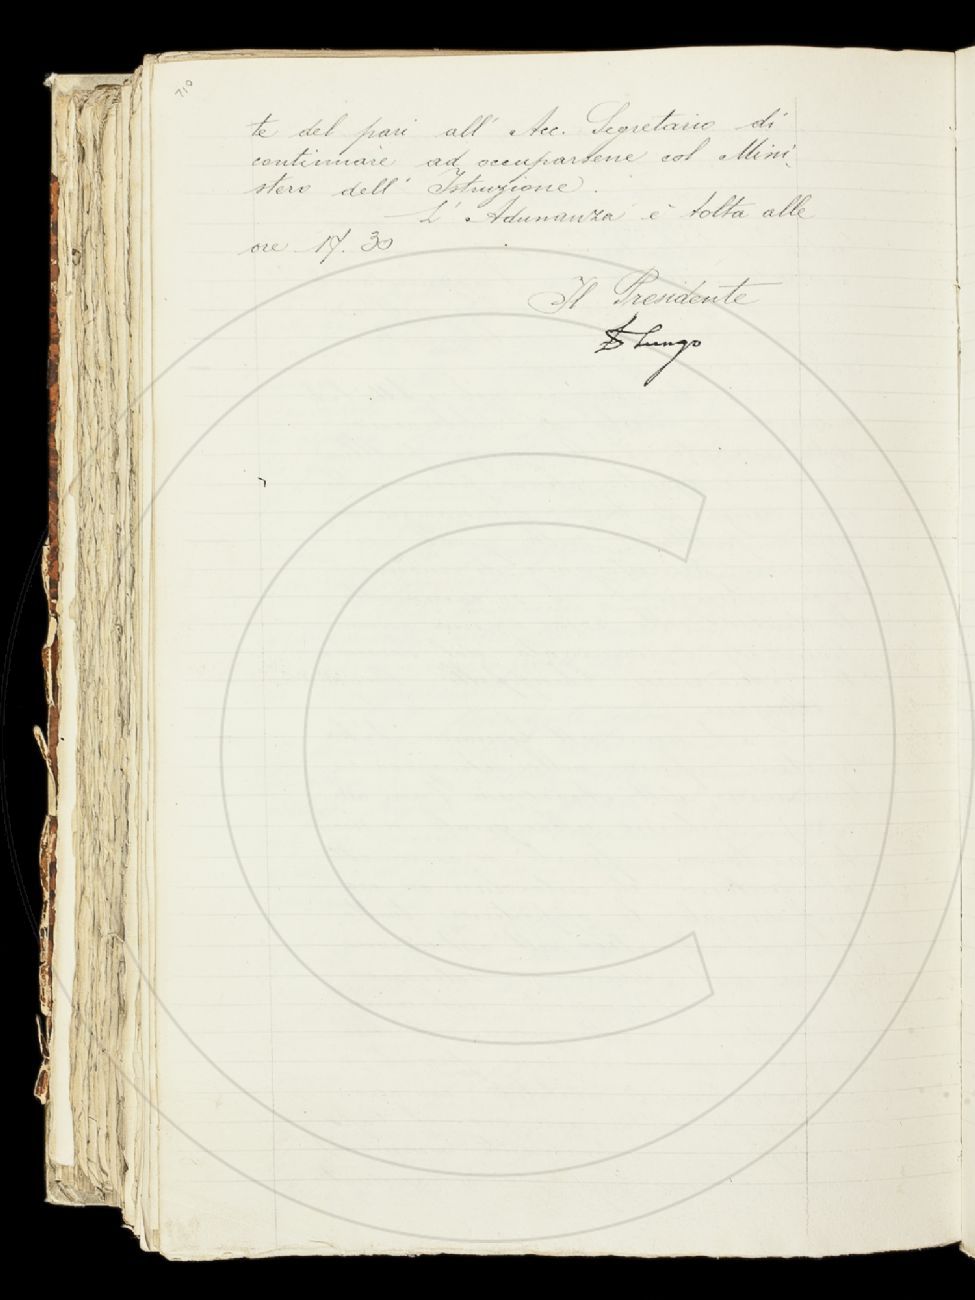 710
te del pari all' Acc. Segretario di
continuare ad occuparsene col Mini-
stero dell' Istruzione.
L' Adunanza è tolta alle
ore 17.30
Il Presidente
Lungo